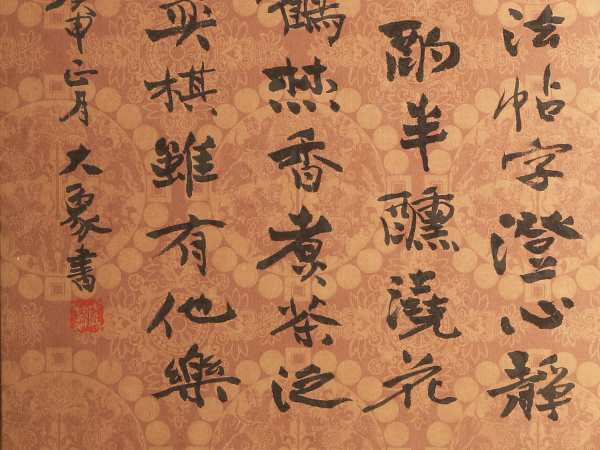 法帖字澄心靜
酌半醺澆花
鶴焚香煮茶泛
奕棋雖有他樂
申正月大象書